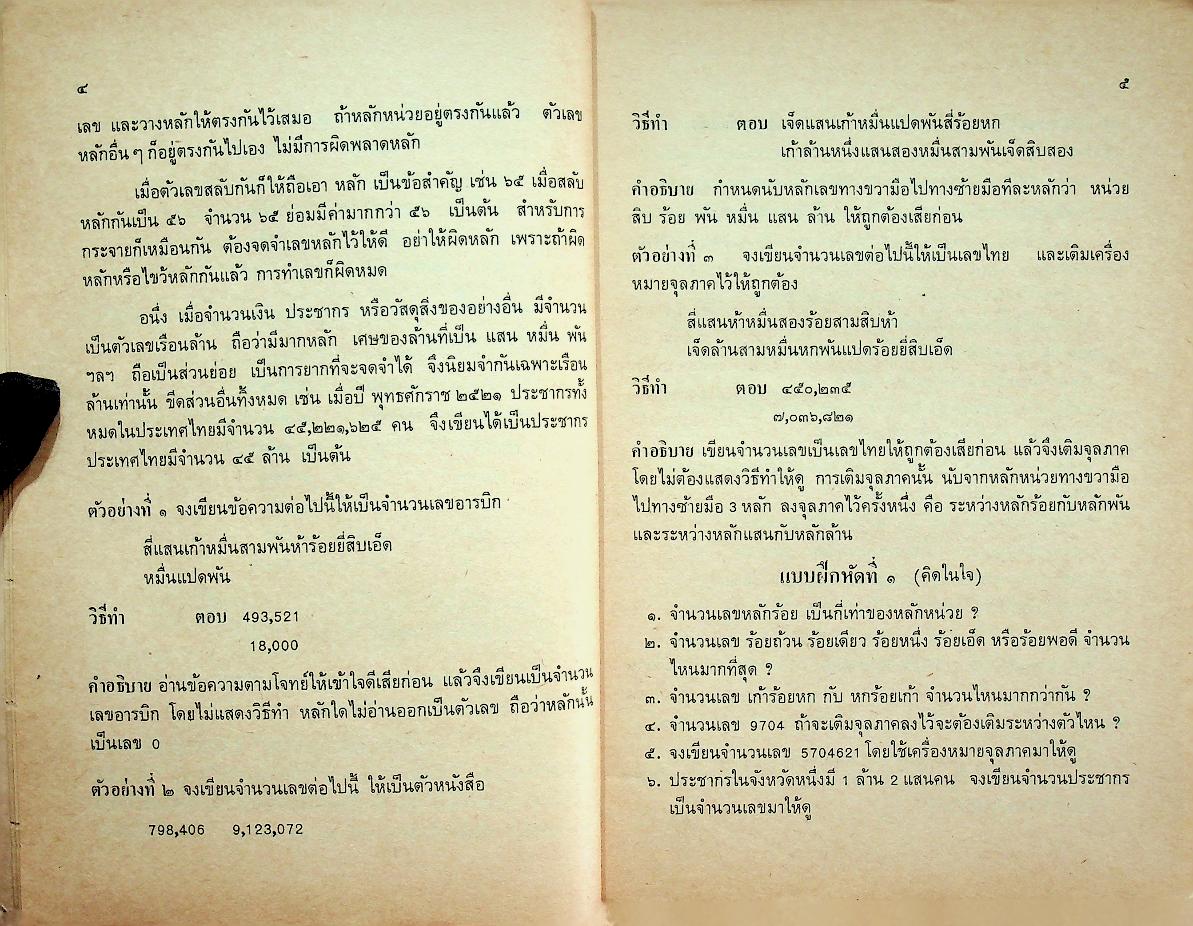 ๔
เลข และวางหลักให้ตรงกันไว้เสมอ ถ้าหลักหน่วยอยู่ตรงกันแล้ว ตัวเลข
หลักอื่น ๆ ก็อยู่ตรงกันไปเอง ไม่มีการผิดพลาดหลัก
เมื่อตัวเลขสลับกันก็ให้ถือเอา หลัก เป็นข้อสำคัญ เช่น ๖๕ เมื่อสลับ
หลักกันเป็น ๕๖ จำนวน ๖๕ ย่อมมีค่ามากกว่า ๕๖ เป็นต้น สำหรับการ
กระจายก็เหมือนกัน ต้องจดจำเลขหลักไว้ให้ดี อย่าให้ผิดหลัก เพราะถ้าผิด
หลักหรือไขว้หลักกันแล้ว การทำเลขก็ผิดหมด
อนึ่ง เมื่อจำนวนเงิน ประชากร หรือวัสดุสิ่งของอย่างอื่น มีจำนวน
เป็นตัวเลขเรือนล้าน ถือว่ามีมากหลัก เศษของล้านที่เป็น แสน หมื่น พัน
ฯลฯ ถือเป็นส่วนย่อย เป็นการยากที่จะจดจำได้ จึงนิยมจำกันเฉพาะเรือน
ล้านเท่านั้น ขีดส่วนอื่นทิ้งหมด เช่น เมื่อปี พุทธศักราช ๒๕๒๑ ประชากรทั้ง
หมดในประเทศไทยมีจำนวน ๔๕,๒๒๑,๖๒๕ คน จึงเขียนได้เป็นประชากร
ประเทศไทยมีจำนวน ๔๕ ล้าน เป็นต้น
ตัวอย่างที่ ๑ จงเขียนข้อความต่อไปนี้ให้เป็นจำนวนเลขอารบิก
สี่แสนเก้าหมื่นสามพันห้าร้อยยี่สิบเอ็ด
หมื่นแปดพัน
วิธีทำ ตอบ 493,521
18,000
คำอธิบาย อ่านข้อความตามโจทย์ให้เข้าใจดีเสียก่อน แล้วจึงเขียนเป็นจำนวน
เลขอารบิก โดยไม่แสดงวิธีทำ หลักใดไม่อ่านออกเป็นตัวเลข ถือว่าหลักนั้น
เป็นเลข 0
ตัวอย่างที่ ๒ จงเขียนจำนวนเลขต่อไปนี้ ให้เป็นตัวหนังสือ
798,406 9,123,072
๕
วิธีทำ ตอบ เจ็ดแสนเก้าหมื่นแปดพันสี่ร้อยหก
เก้าล้านหนึ่งแสนสองหมื่นสามพันเจ็ดสิบสอง
คำอธิบาย กำหนดนับหลักเลขทางขวามือไปทางซ้ายมือทีละหลักว่า หน่วย
สิบ ร้อย พัน หมื่น แสน ล้าน ให้ถูกต้องเสียก่อน
ตัวอย่างที่ ๓ จงเขียนจำนวนเลขต่อไปนี้ให้เป็นเลขไทย และเติมเครื่อง
หมายจุลภาคไว้ให้ถูกต้อง
สี่แสนห้าหมื่นสองร้อยสามสิบห้า
เจ็ดล้านสามหมื่นหกพันแปดร้อยยี่สิบเอ็ด
วิธีทำ ตอบ ๔๕๐,๒๓๕
๗,๐๓๖,๘๒๑
คำอธิบาย เขียนจำนวนเลขเป็นเลขไทยให้ถูกต้องเสียก่อน แล้วจึงเติมจุลภาค
โดยไม่ต้องแสดงวิธีทำให้ดู การเติมจุลภาคนั้น นับจากหลักหน่วยทางขวามือ
ไปทางซ้ายมือ 3 หลัก ลงจุลภาคไว้ครั้งหนึ่ง คือ ระหว่างหลักร้อยกับหลักพัน
และระหว่างหลักแสนกับหลักล้าน
แบบฝึกหัดที่ ๑ (คิดในใจ)
๑. จำนวนเลขหลักร้อย เป็นกี่เท่าของหลักหน่วย ?
๒. จำนวนเลข ร้อยถ้วน ร้อยเดียว ร้อยหนึ่ง ร้อยเอ็ด หรือร้อยพอดี จำนวน
ไหนมากที่สุด ?
๓. จำนวนเลข เก้าร้อยหก กับ หกร้อยเก้า จำนวนไหนมากกว่ากัน ?
๔. จำนวนเลข 9704 ถ้าจะเติมจุลภาคลงไว้จะต้องเติมระหว่างตัวไหน ?
๕. จงเขียนจำนวนเลข 5704621 โดยใช้เครื่องหมายจุลภาคมาให้ดู
๖. ประชากรในจังหวัดหนึ่งมี 1 ล้าน 2 แสนคน จงเขียนจำนวนประชากร
เป็นจำนวนเลขมาให้ดู